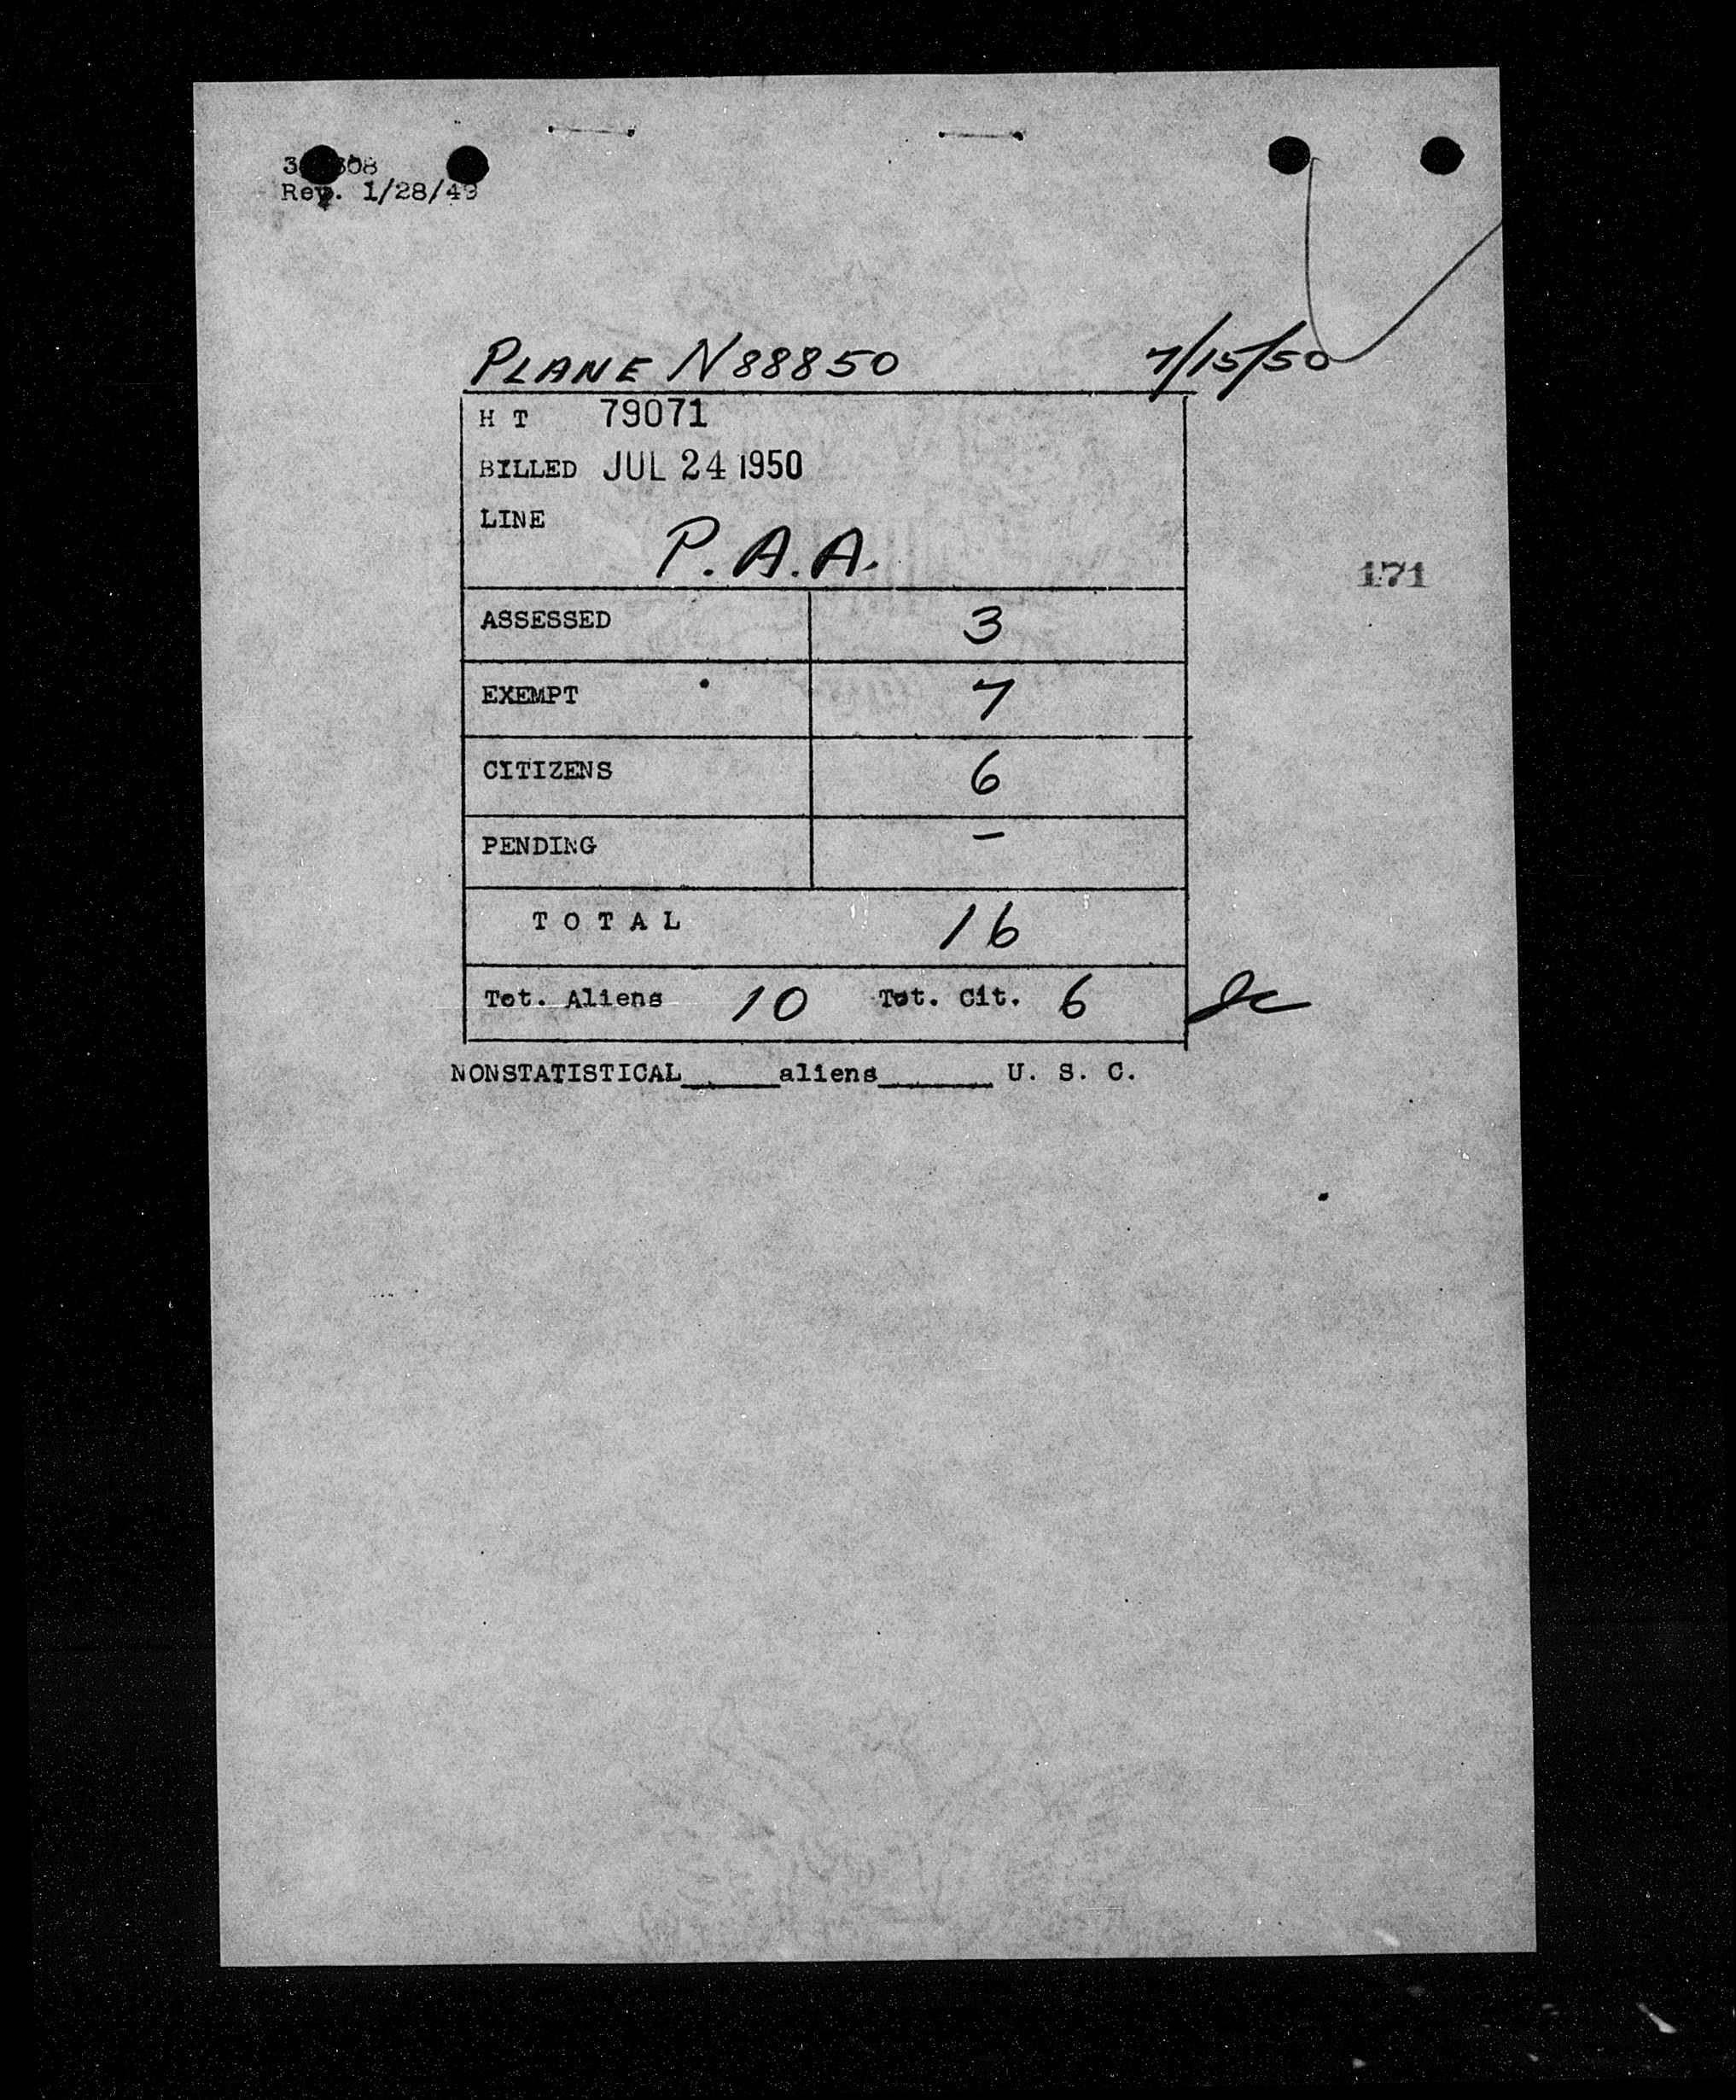 Rev. 1/28/49
PLANE N88850 7/15/50
H T 79071
BILLED JUL 24 1950
LINE
P.A.A.
171
ASSESSED 3
EXEMPT 7
CITIZENS 6
PENDING –
T O T A L 16
Tot. Aliens 10 Tot. Cit. 6
NONSTATISTICAL_____aliens______ U. S. C.